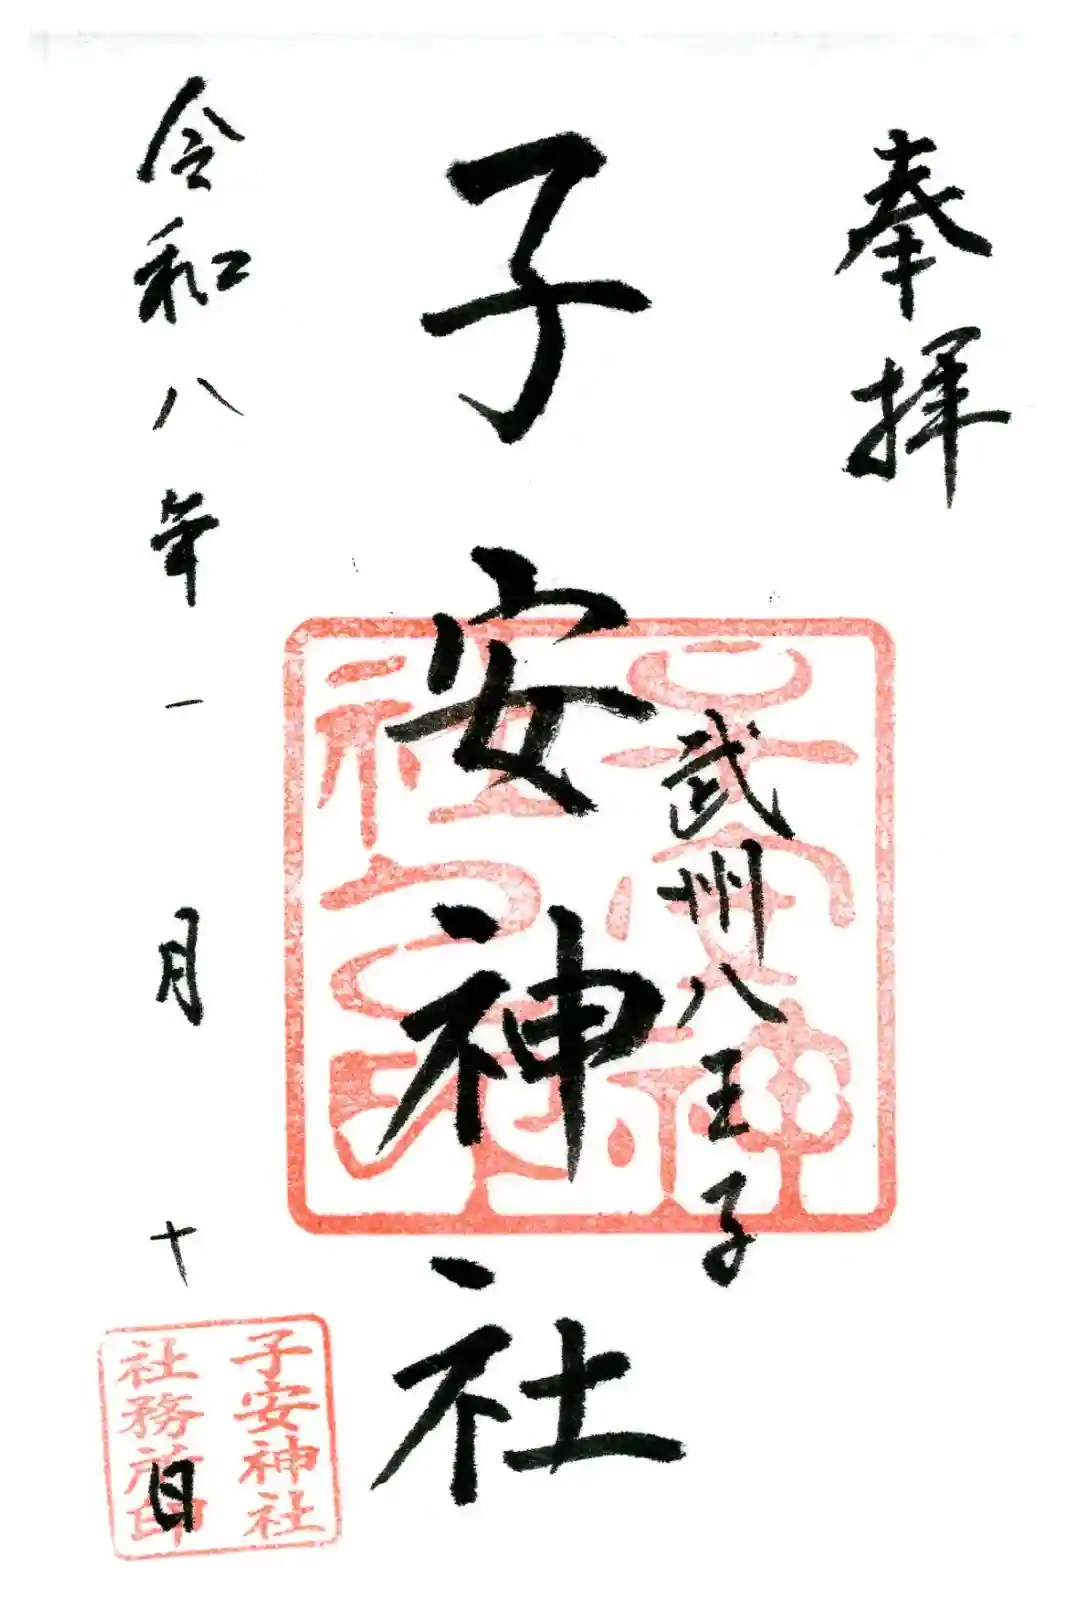 奉拝
武州八王子
子安神社
令和八年一月十日
子安神社
社務所印